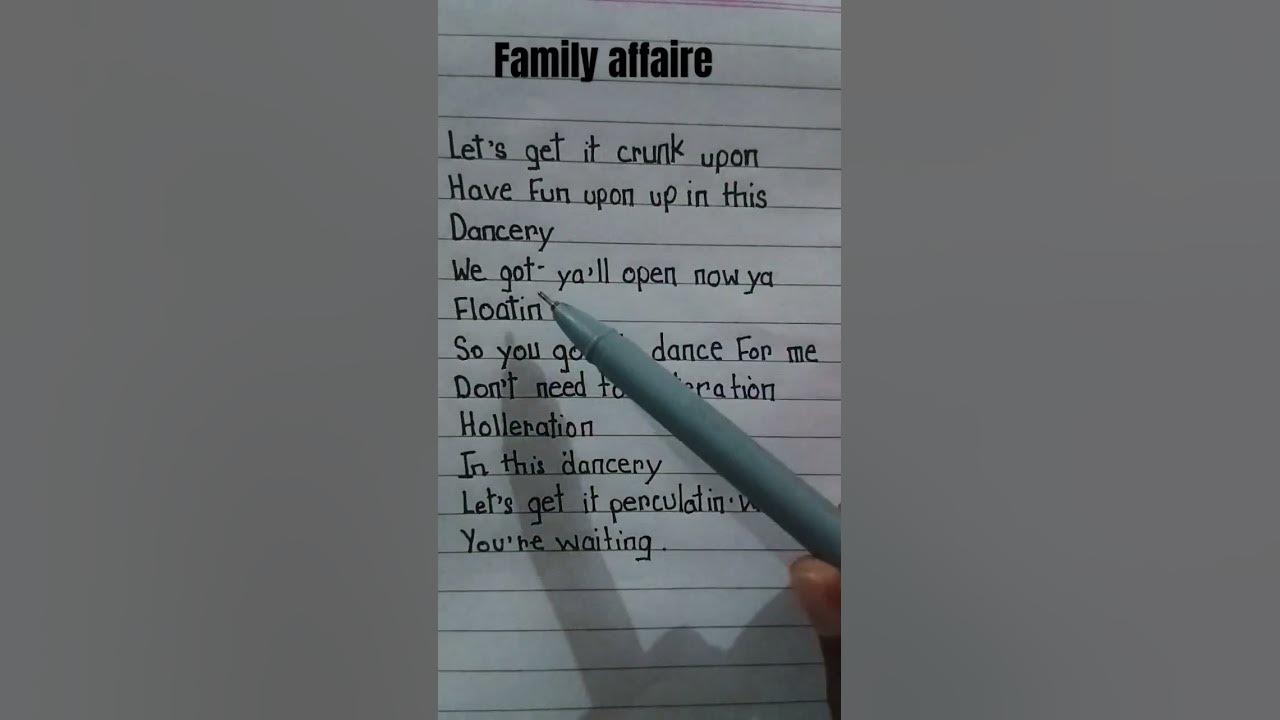 Family affaire
Let's get it crunk upon
Have Fun upon up in this
Dancery
We got- ya'll open now ya
Floatin
So you dance For me
Don't need
Holleration
In this dancery
Let's get it perculatin.
You're waiting.